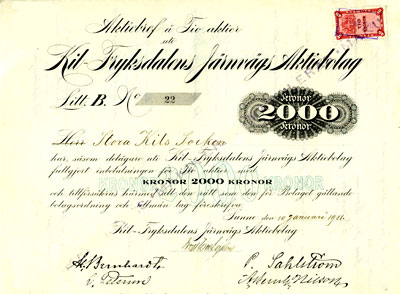 Aktiebref å Tio aktier
uti
Kil-Fryksdalens Järnvägs Aktiebolag
Litt. B. No 22
Kronor
2000
Kronor
Herr Stora Kils Socken
har, såsom delägare uti Kil-Fryksdalens Järnvägs Aktiebolag
fullgjort inbetalningen för Tio aktier med
KRONOR 2000 KRONOR
och tillförsäkras härmed all den rätt som den för Bolaget gällande
bolagsordning och allmän lag föreskrifva.
Sunne den 10 Januari 1911
Kil-Fryksdalens Järnvägs Aktiebolag
Bernhardt
P. Sahlström
Nilson